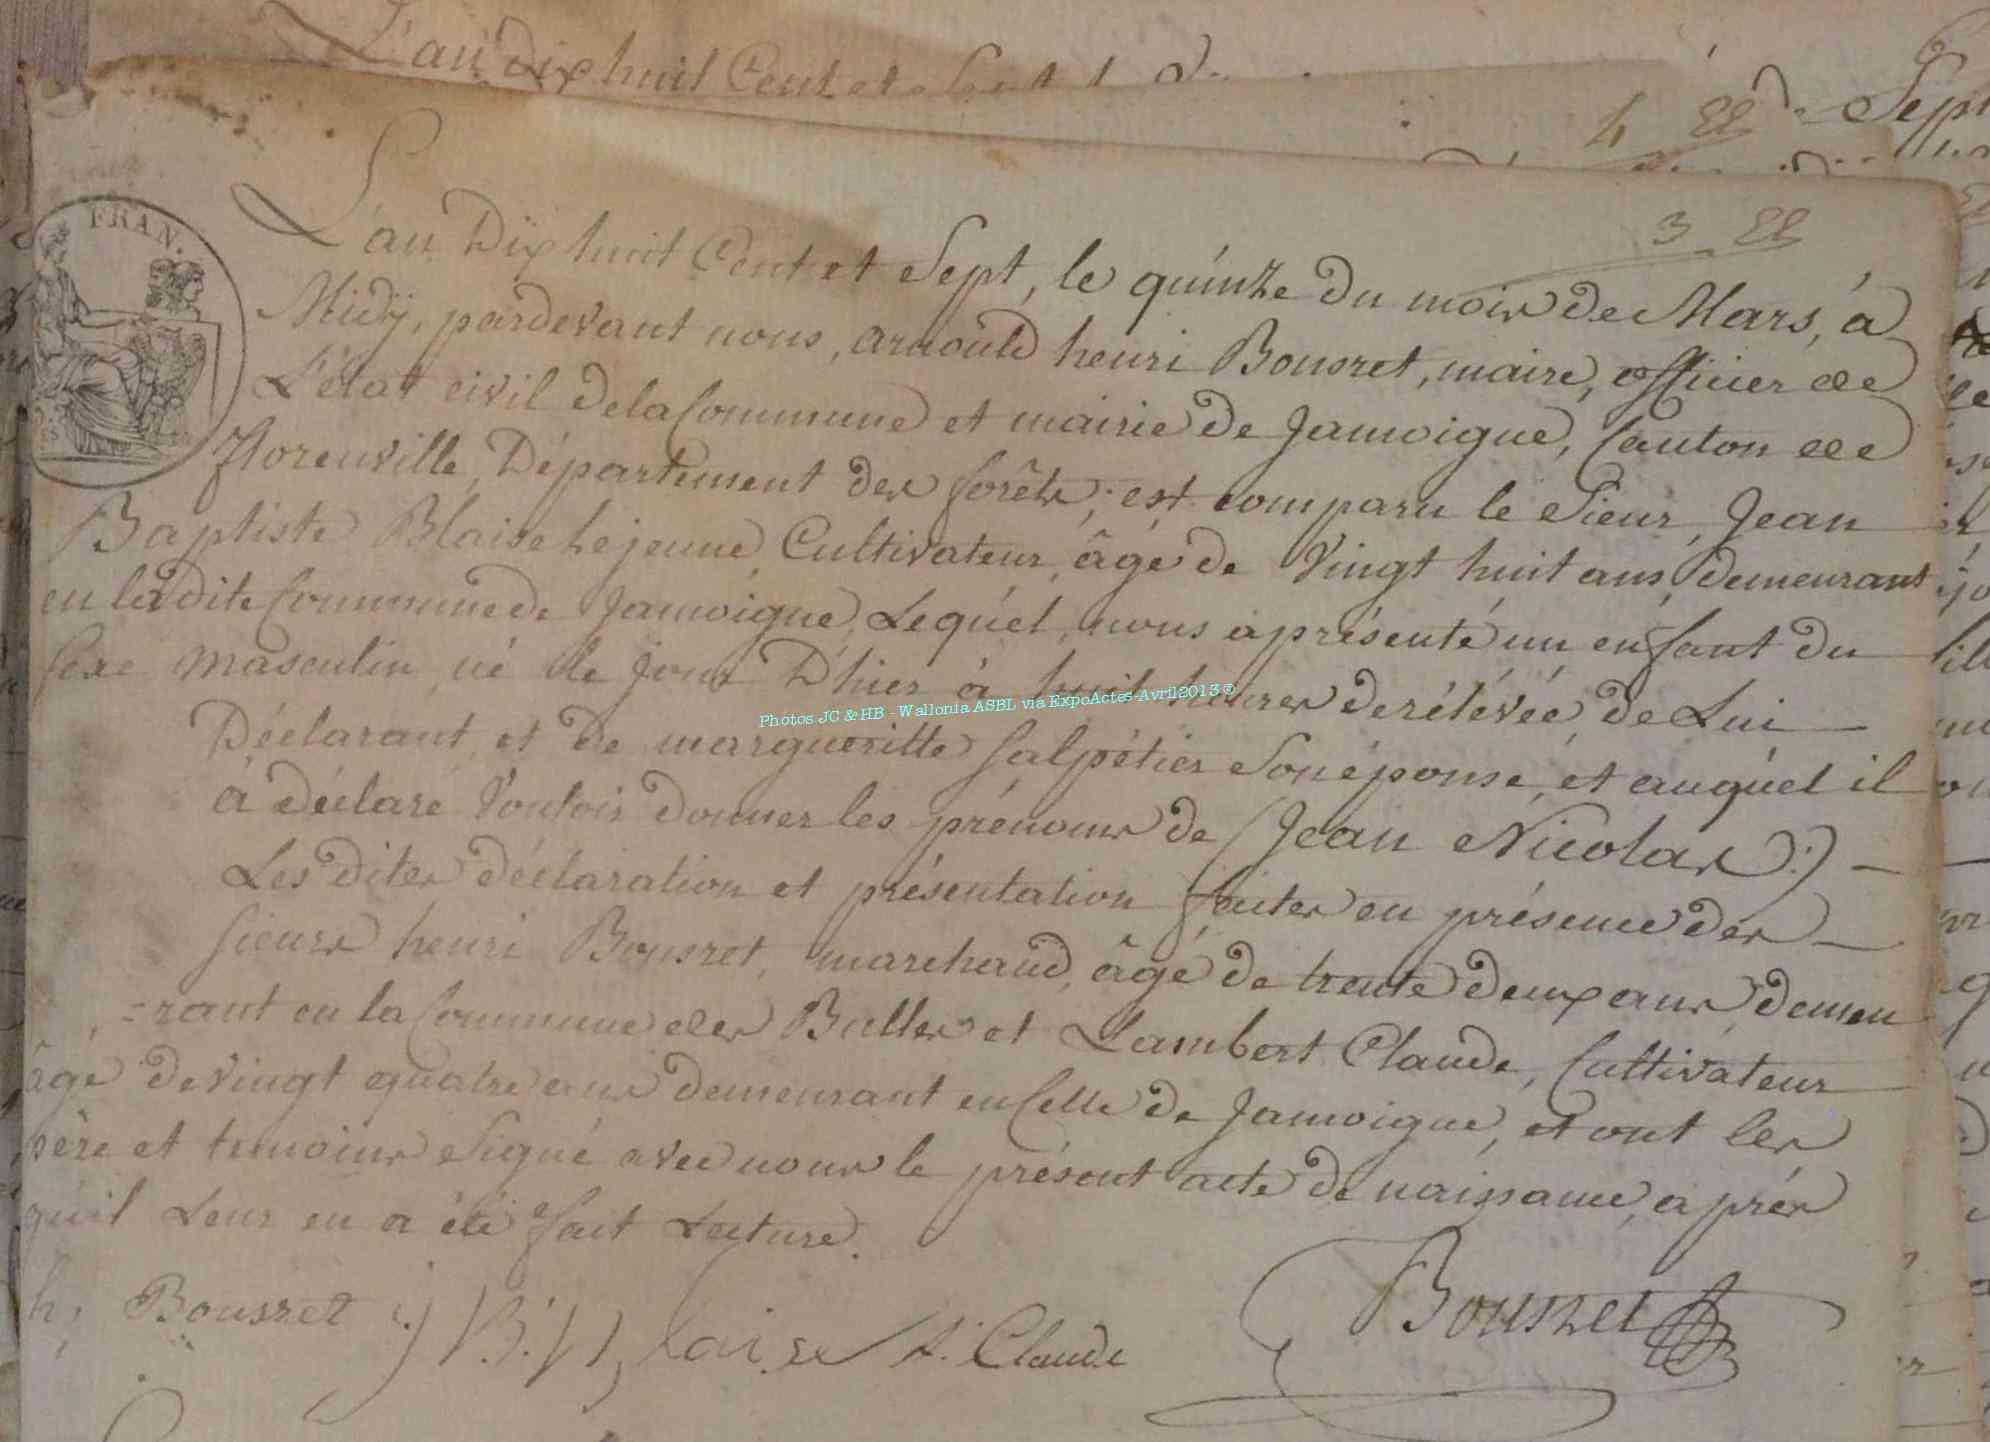 L'an Dix huit Cent et Sept
h 22 Sept
3 22
FRAN.
L'an Dix huit Cent et Sept, le quinze du mois de Mars, à
Midÿ, pardevant nous, arnould henri Bousret, maire, officier de
L'état civil de la Commune et mairie de Jamoigne, Canton de
florenville, Département des forêts; est comparu le Sieur, Jean
Baptiste Blaise Lejeune, Cultivateur, âgé de Vingt huit ans, demeurant
en la dite Commune de Jamoigne, Lequél, nous à présenté un enfant du
sexe masculin, né le jour D'hier à huit heures derélévée, de Lui
Photos JC & HB - Wallonia ASBL via ExpoActes-Avril2013®
Déclarant, et de margueritte Salpétier Son épouse, et auquél il
à déclaré Vouloir donner les prénoms de (Jean Nicolas:)
Les dites déclaration et présentation faites en présence des
sieurs henri Bousret, marchand, âgé de trente deux ans, demeu
=rant en la Commune des Bulles et Lambert Claude, Cultivateur
âgé de vingt quatre ans demeurant en Celle de Jamoigne, et ont les
père et temoins Signé avec nous le présent acte de naissance, après
qu'il Leur en a été fait Lecture.
h, Bousret j B: Blaise L. Claude Bousret